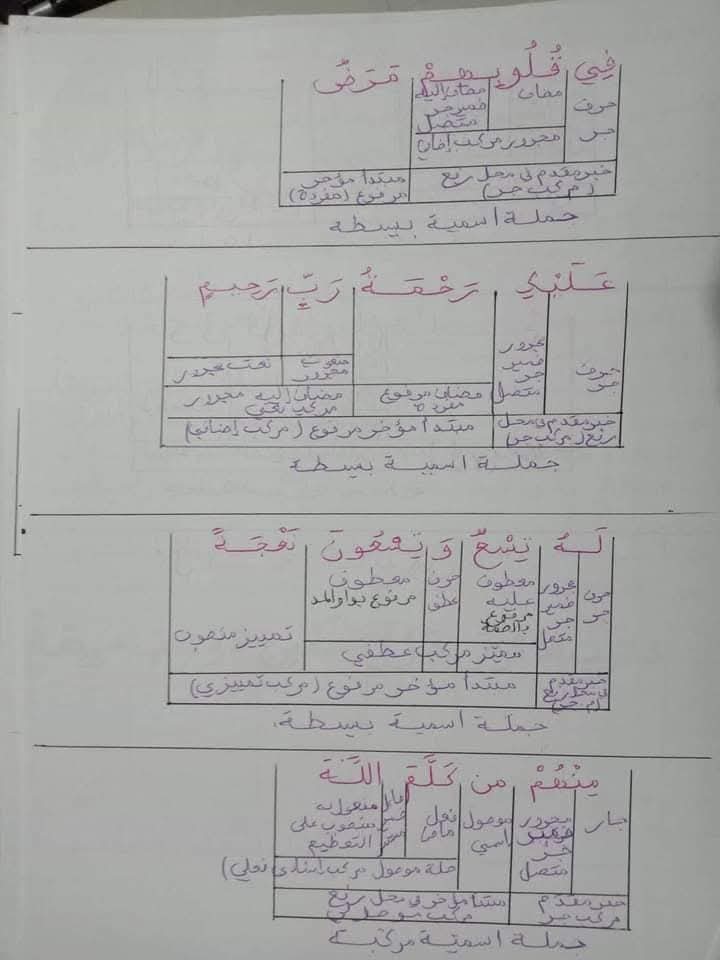 فِي قُلُوبِهِمْ مَرَضٌ
حرف جر
مضاف
مضاف إليه ضمير جر متصل
مجرور مركب إضافي
خبر مقدم في محل رفع (م مركب جر)
مبتدأ مؤخر مرفوع (مفردة)
جملة اسمية بسيطة
عَلَيْكِ رَحْمَةُ رَبٍّ رَحِيمٍ
حرف جر
مجرور ضمير جر متصل
منعوت مجرور
نعت مجرور
مضاف مرفوع مفردة
مضاف إليه مجرور مركب نعتي
خبر مقدم في محل رفع (مركب جر)
مبتدأ مؤخر مرفوع (مركب إضافي)
جملة اسمية بسيطة
لَهُ تِسْعٌ وَ تِسْعُونَ نَعْجَةً
حرف جر
مجرور ضمير جر متصل
معطوف عليه مرفوع بالضمة
حرف عطف
معطوف مرفوع بواو المد
تمييز منصوب
مميّز مركب عطفي
خبر مقدم في محل رفع (م. جر)
مبتدأ مؤخر مرفوع (مركب تمييزي)
جملة اسمية بسيطة.
مِنْهُمْ من كَلَّمَ اللَّهَ
جار
مجرور ضمير جر متصل
موصول اسمي
فعل ماض
فاعل ضمير مستتر
مفعول به منصوب على التعظيم
صلة موصول مركب إسنادي فعلي)
خبر مقدم مركب جر
مبتدأ مؤخر في محل رفع مركب موصولي
جملة اسمية مركبة